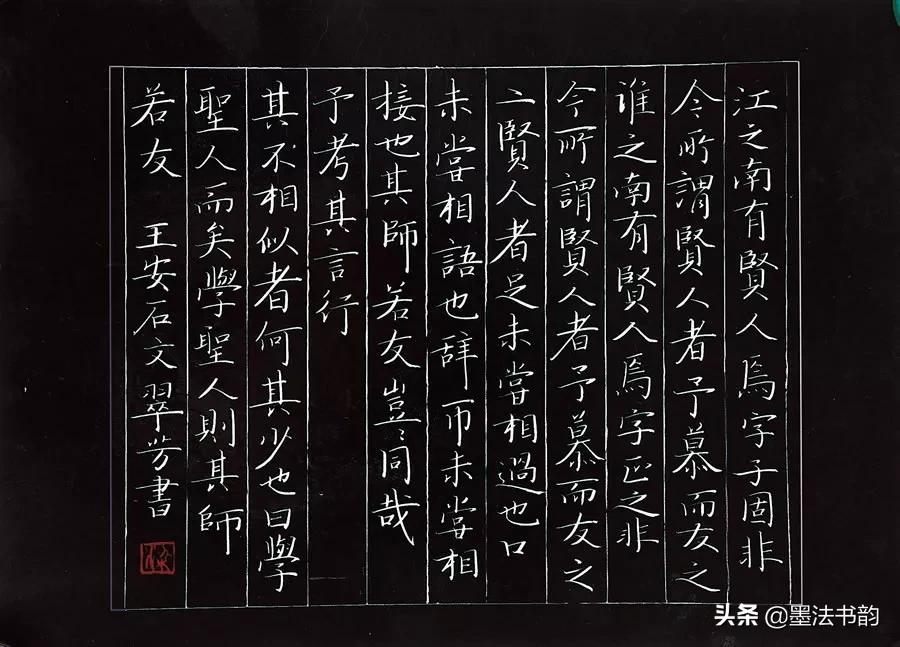 江之南有賢人焉字子固非
今所謂賢人者予慕而友之
淮之南有賢人焉字正之非
今所謂賢人者予慕而友之
二賢人者足未嘗相過也口
未嘗相語也辞币未嘗相
接也其師若友豈〻同哉
予考其言行
其不相似者何其少也曰學
聖人而矣學聖人則其師
若友 王安石文翠芳書
头条 @墨法书韵